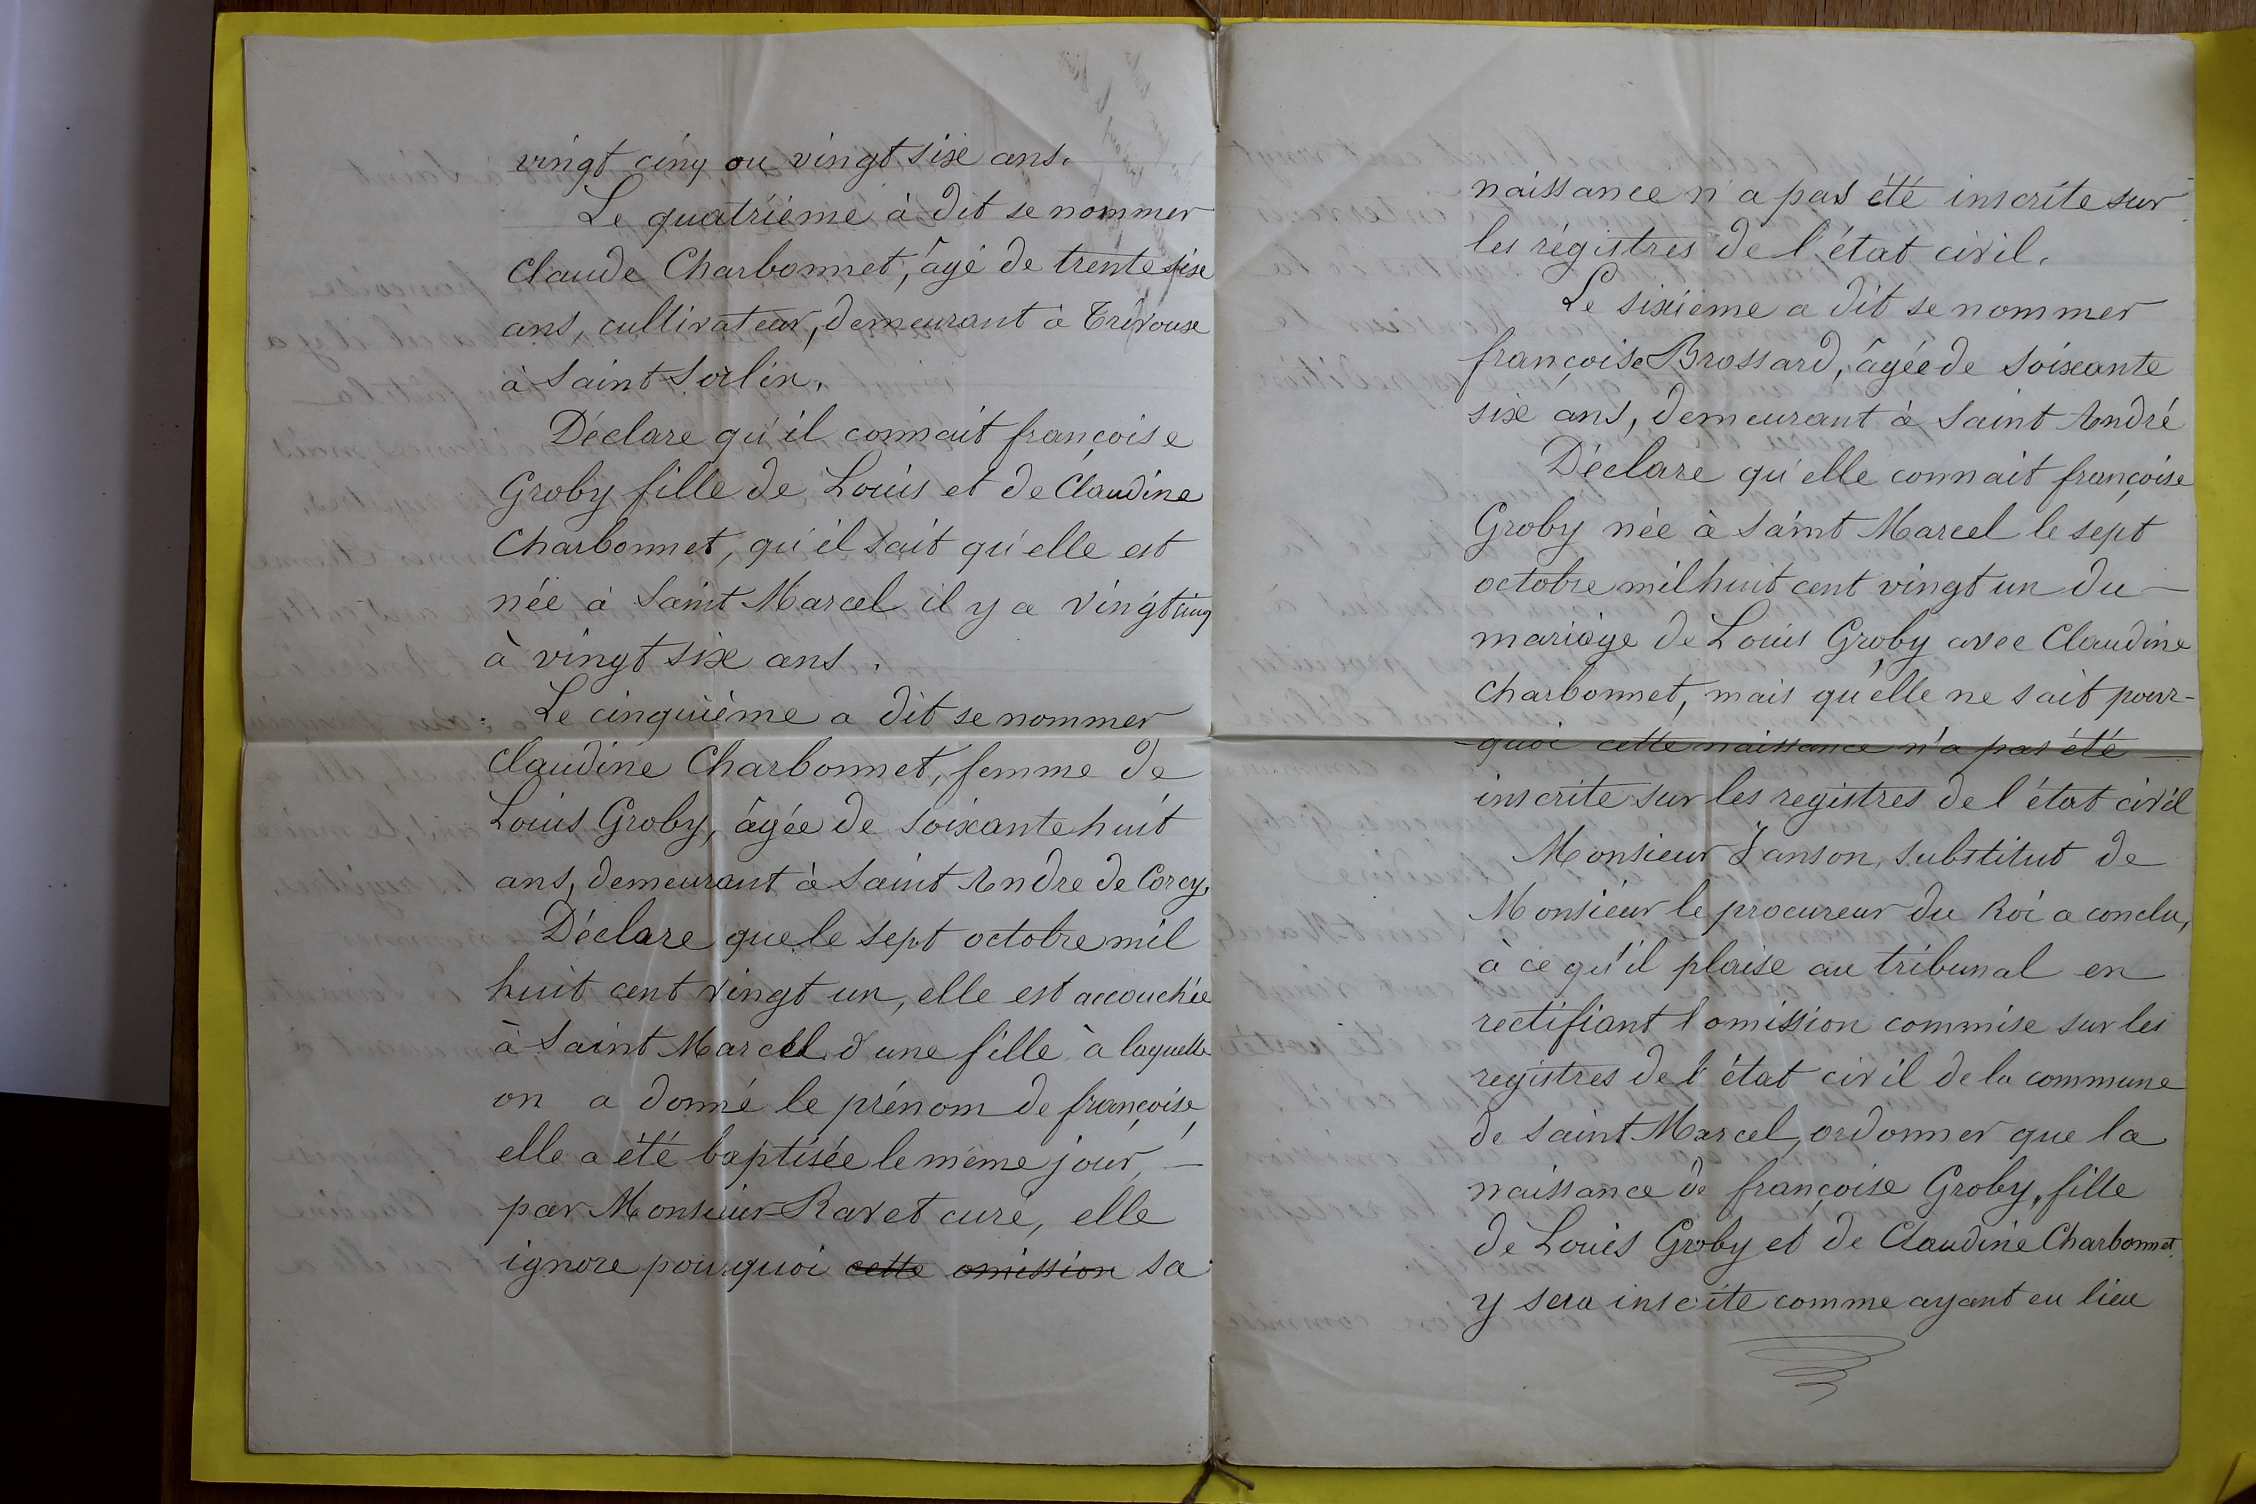 vingt cinq ou vingt six ans.
Le quatrième à dit se nommer
Claude Charbonnet, âgé de trente six
ans, cultivateur, demeurant à Trévoux
à Saint Sorlin.
Déclare qu'il connait françoise
Groby fille de Louis et de Claudine
Charbonnet, qu'il sait qu'elle est
née à Saint Marcel il y a vingt cinq
à vingt six ans.
Le cinquième a dit se nommer
Claudine Charbonnet, femme de
Louis Groby, âgée de soixante huit
ans, demeurant à Saint Andre de Corcy,
Déclare que le sept octobre mil
huit cent vingt un, elle est accouchée
à Saint Marcel d'une fille à laquelle
on a donné le prénom de françoise,
elle a été baptisée le même jour, —
par Monsieur Ravet curé, elle
ignore pourquoi cette omission sa
naissance n'a pas été inscrite sur
les régistres de l'état civil.
Le sixième a dit se nommer
françoise Brossard, âgée de soixante
six ans, demeurant à Saint André
Déclare qu'elle connait françoise
Groby née à Saint Marcel le sept
octobre mil huit cent vingt un du —
mariage de Louis Groby avec Claudine
Charbonnet, mais qu'elle ne sait pour-
quoi cette naissance n'a pas été —
inscrite sur les registres de l'état civil
Monsieur Janson, substitut de
Monsieur le procureur du Roi a conclu,
à ce qu'il plaise au tribunal en
rectifiant l'omission commise sur les
registres de l'état civil de la commune
de Saint Marcel, ordonner que la
naissance de françoise Groby, fille
de Louis Groby et de Claudine Charbonnet
y sera inscite comme ayant eu lieu